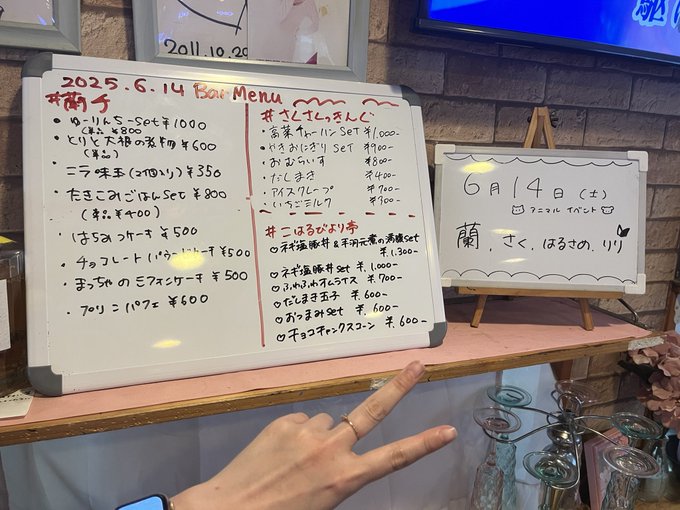 2011.10.29
2025.6.14 Bar Menu
#蘭千
・ゆーりんちーset ¥1000
(単品 ¥800
・とりと大根の煮物 ¥600
(単品)
・ニラ味玉(2個入り) ¥350
・たきこみごはんset ¥800
(単品 ¥400)
・はちみつケーキ ¥500
・チョコレートパウンドケーキ ¥500
・まっちゃのミフォンケーキ ¥500
・プリンパフェ ¥600
#さくさくっきんぐ
・高菜チャーハンSET ¥1,000-
・やきおにぎりSET ¥900-
・おむらいす ¥800-
・だしまき ¥400-
・アイスクレープ ¥700-
・いちごミルク ¥300-
#こはるびより亭
♡ネギ塩豚丼&手羽元煮の満腹set
¥1,300-
♡ネギ塩豚丼set ¥1,000-
♡ふわふわオムライス ¥700-
♡だしまき玉子 ¥600-
♡おつまみSet ¥600-
♡チョコチャンクスコーン ¥600-
6月14日(土)
アニマル イベント
蘭、さく、はるさめ、りり